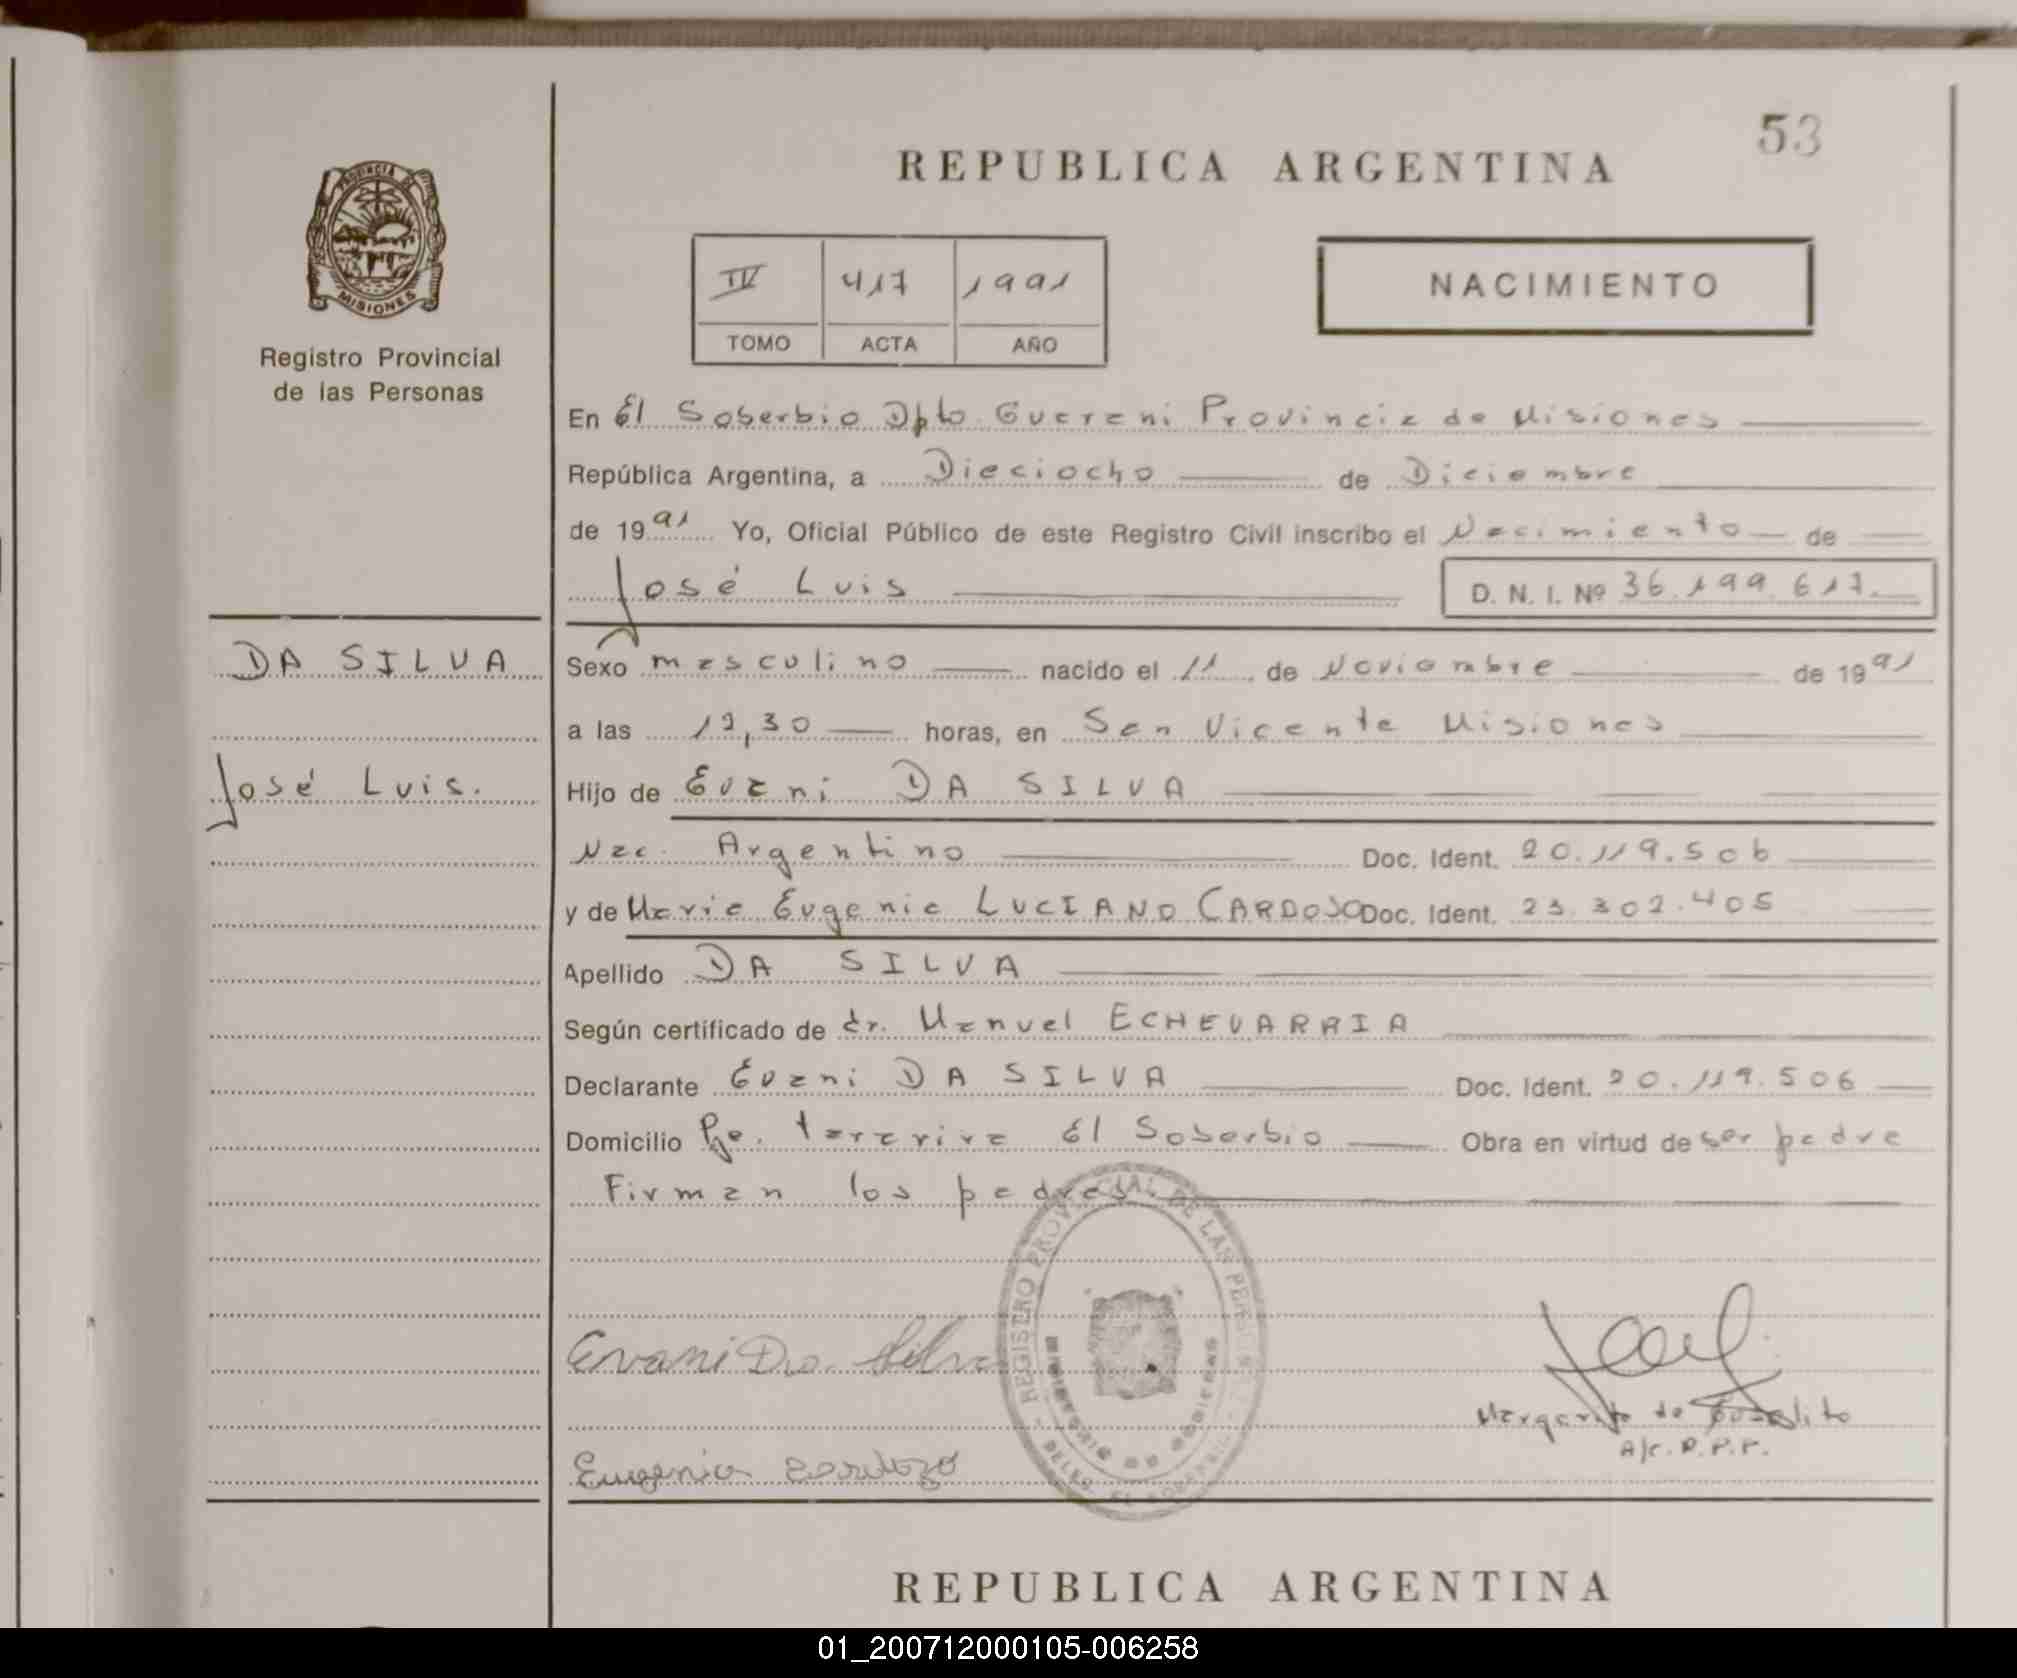 53
REPUBLICA ARGENTINA
PROVINCIA DE
MISIONES
Registro Provincial
de las Personas
IV 417 1991
TOMO ACTA AÑO
NACIMIENTO
En El Soberbio Dpto. Guarani Provincia de Misiones
República Argentina, a Dieciocho de Diciembre
de 1991 Yo, Oficial Público de este Registro Civil inscribo el Nacimiento de
José Luis D. N. I. Nº 36.199.617.
DA SILVA
José Luis.
Sexo masculino nacido el 11 de Noviembre de 1991
a las horas, en San Vicente Misiones
Hijo de Evani DA SILVA
Nac. Argentino Doc. Ident. 20.119.506
y de Maria Eugenia LUCIANO CARDOSO Doc. Ident. 23.302.405
Apellido DA SILVA
Según certificado de dr. Manuel ECHEVARRIA
Declarante Evani DA SILVA Doc. Ident. 20.119.506
Domicilio Pje. tararira El Soberbio Obra en virtud de ser padre
Firman los padres.
REGISTRO PROVINCIAL DE LAS PERSONAS
MINISTERIO DE GOBIERNO
Evani Da Silva
Margarita de
A/c. R.P.P.
Eugenia Cardozo
REPUBLICA ARGENTINA
01_200712000105-006258